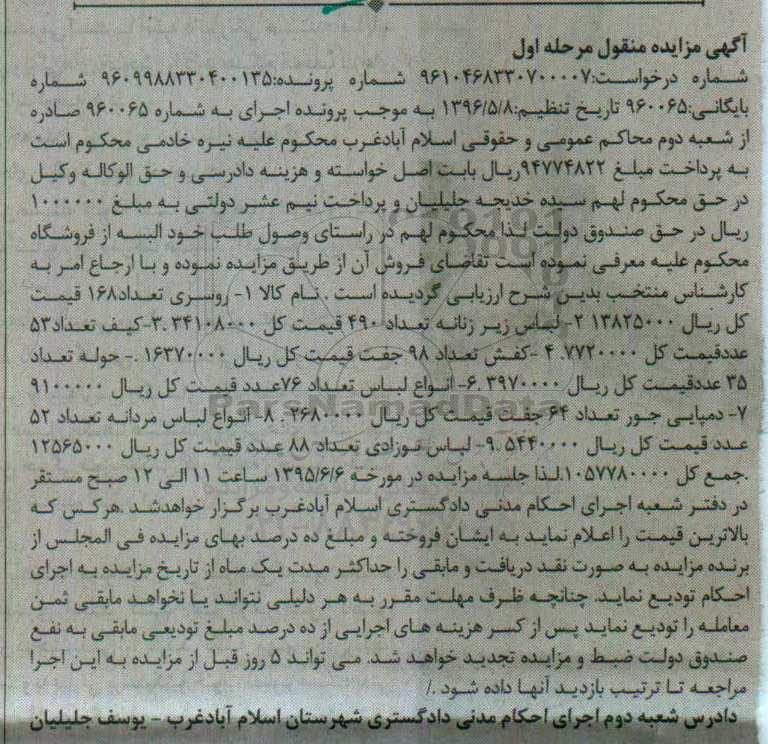 آگهی مزایده منقول مرحله اول
شماره درخواست:۹۶۱۰۴۶۸۳۳۰۷۰۰۰۰۷ شماره پرونده:۹۶۰۹۹۸۸۳۳۰۴۰۰۱۳۵ شماره
بایگانی:۹۶۰۰۶۵ تاریخ تنظیم:۱۳۹۶/۵/۸ به موجب پرونده اجرای به شماره ۹۶۰۰۶۵ صادره
از شعبه دوم محاکم عمومی و حقوقی اسلام آبادغرب محکوم علیه نیره خادمی محکوم است
به پرداخت مبلغ ۹۴۷۷۴۸۲۲ریال بابت اصل خواسته و هزینه دادرسی و حق الوکاله وکیل
در حق محکوم لهم سیده خدیجه جلیلیان و پرداخت نیم عشر دولتی به مبلغ ۱۰۰۰۰۰۰
ریال در حق صندوق دولت لذا محکوم لهم در راستای وصول طلب خود البسه از فروشگاه
محکوم علیه معرفی نموده است تقاضای فروش آن از طریق مزایده نموده و با ارجاع امر به
کارشناس منتخب بدین شرح ارزیابی گردیده است . نام کالا ۱- روسری تعداد۱۶۸ قیمت
کل ریال ۱۳۸۲۵۰۰۰ ۲- لباس زیر زنانه تعداد ۴۹۰ قیمت کل ۳۴۱۰۸۰۰۰ .۳-کیف تعداد۵۳
عددقیمت کل ۷۷۲۰۰۰۰. ۴ -کفش تعداد ۹۸ جفت قیمت کل ریال ۱۶۳۷۰۰۰۰ .- حوله تعداد
۳۵ عددقیمت کل ریال ۳۹۷۰۰۰۰ .۶- انواع لباس تعداد ۷۶عدد قیمت کل ریال ۹۱۰۰۰۰۰
۷- دمپایی جور تعداد ۶۴ جفت قیمت کل ریال ۲۶۸۰۰۰۰ . ۸- انواع لباس مردانه تعداد ۵۲
عدد قیمت کل ریال ۵۴۴۰۰۰۰ .۹- لباس نوزادی تعداد ۸۸ عدد قیمت کل ریال ۱۲۵۶۵۰۰۰
.جمع کل ۱۰۵۷۷۸۰۰۰۰.لذا جلسه مزایده در مورخه ۱۳۹۵/۶/۶ ساعت ۱۱ الی ۱۲ صبح مستقر
در دفتر شعبه اجرای احکام مدنی دادگستری اسلام آبادغرب برگزار خواهدشد .هرکس که
بالاترین قیمت را اعلام نماید به ایشان فروخته و مبلغ ده درصد بهای مزایده فی المجلس از
برنده مزایده به صورت نقد دریافت و مابقی را حداکثر مدت یک ماه از تاریخ مزایده به اجرای
احکام تودیع نماید. چنانچه ظرف مهلت مقرر به هر دلیلی نتواند یا نخواهد مابقی ثمن
معامله را تودیع نماید پس از کسر هزینه های اجرایی از ده درصد مبلغ تودیعی مابقی به نفع
صندوق دولت ضبط و مزایده تجدید خواهد شد. می تواند ۵ روز قبل از مزایده به این اجرا
مراجعه تا ترتیب بازدید آنها داده شود ./
دادرس شعبه دوم اجرای احکام مدنی دادگستری شهرستان اسلام آبادغرب - یوسف جلیلیان
ParsNamadData